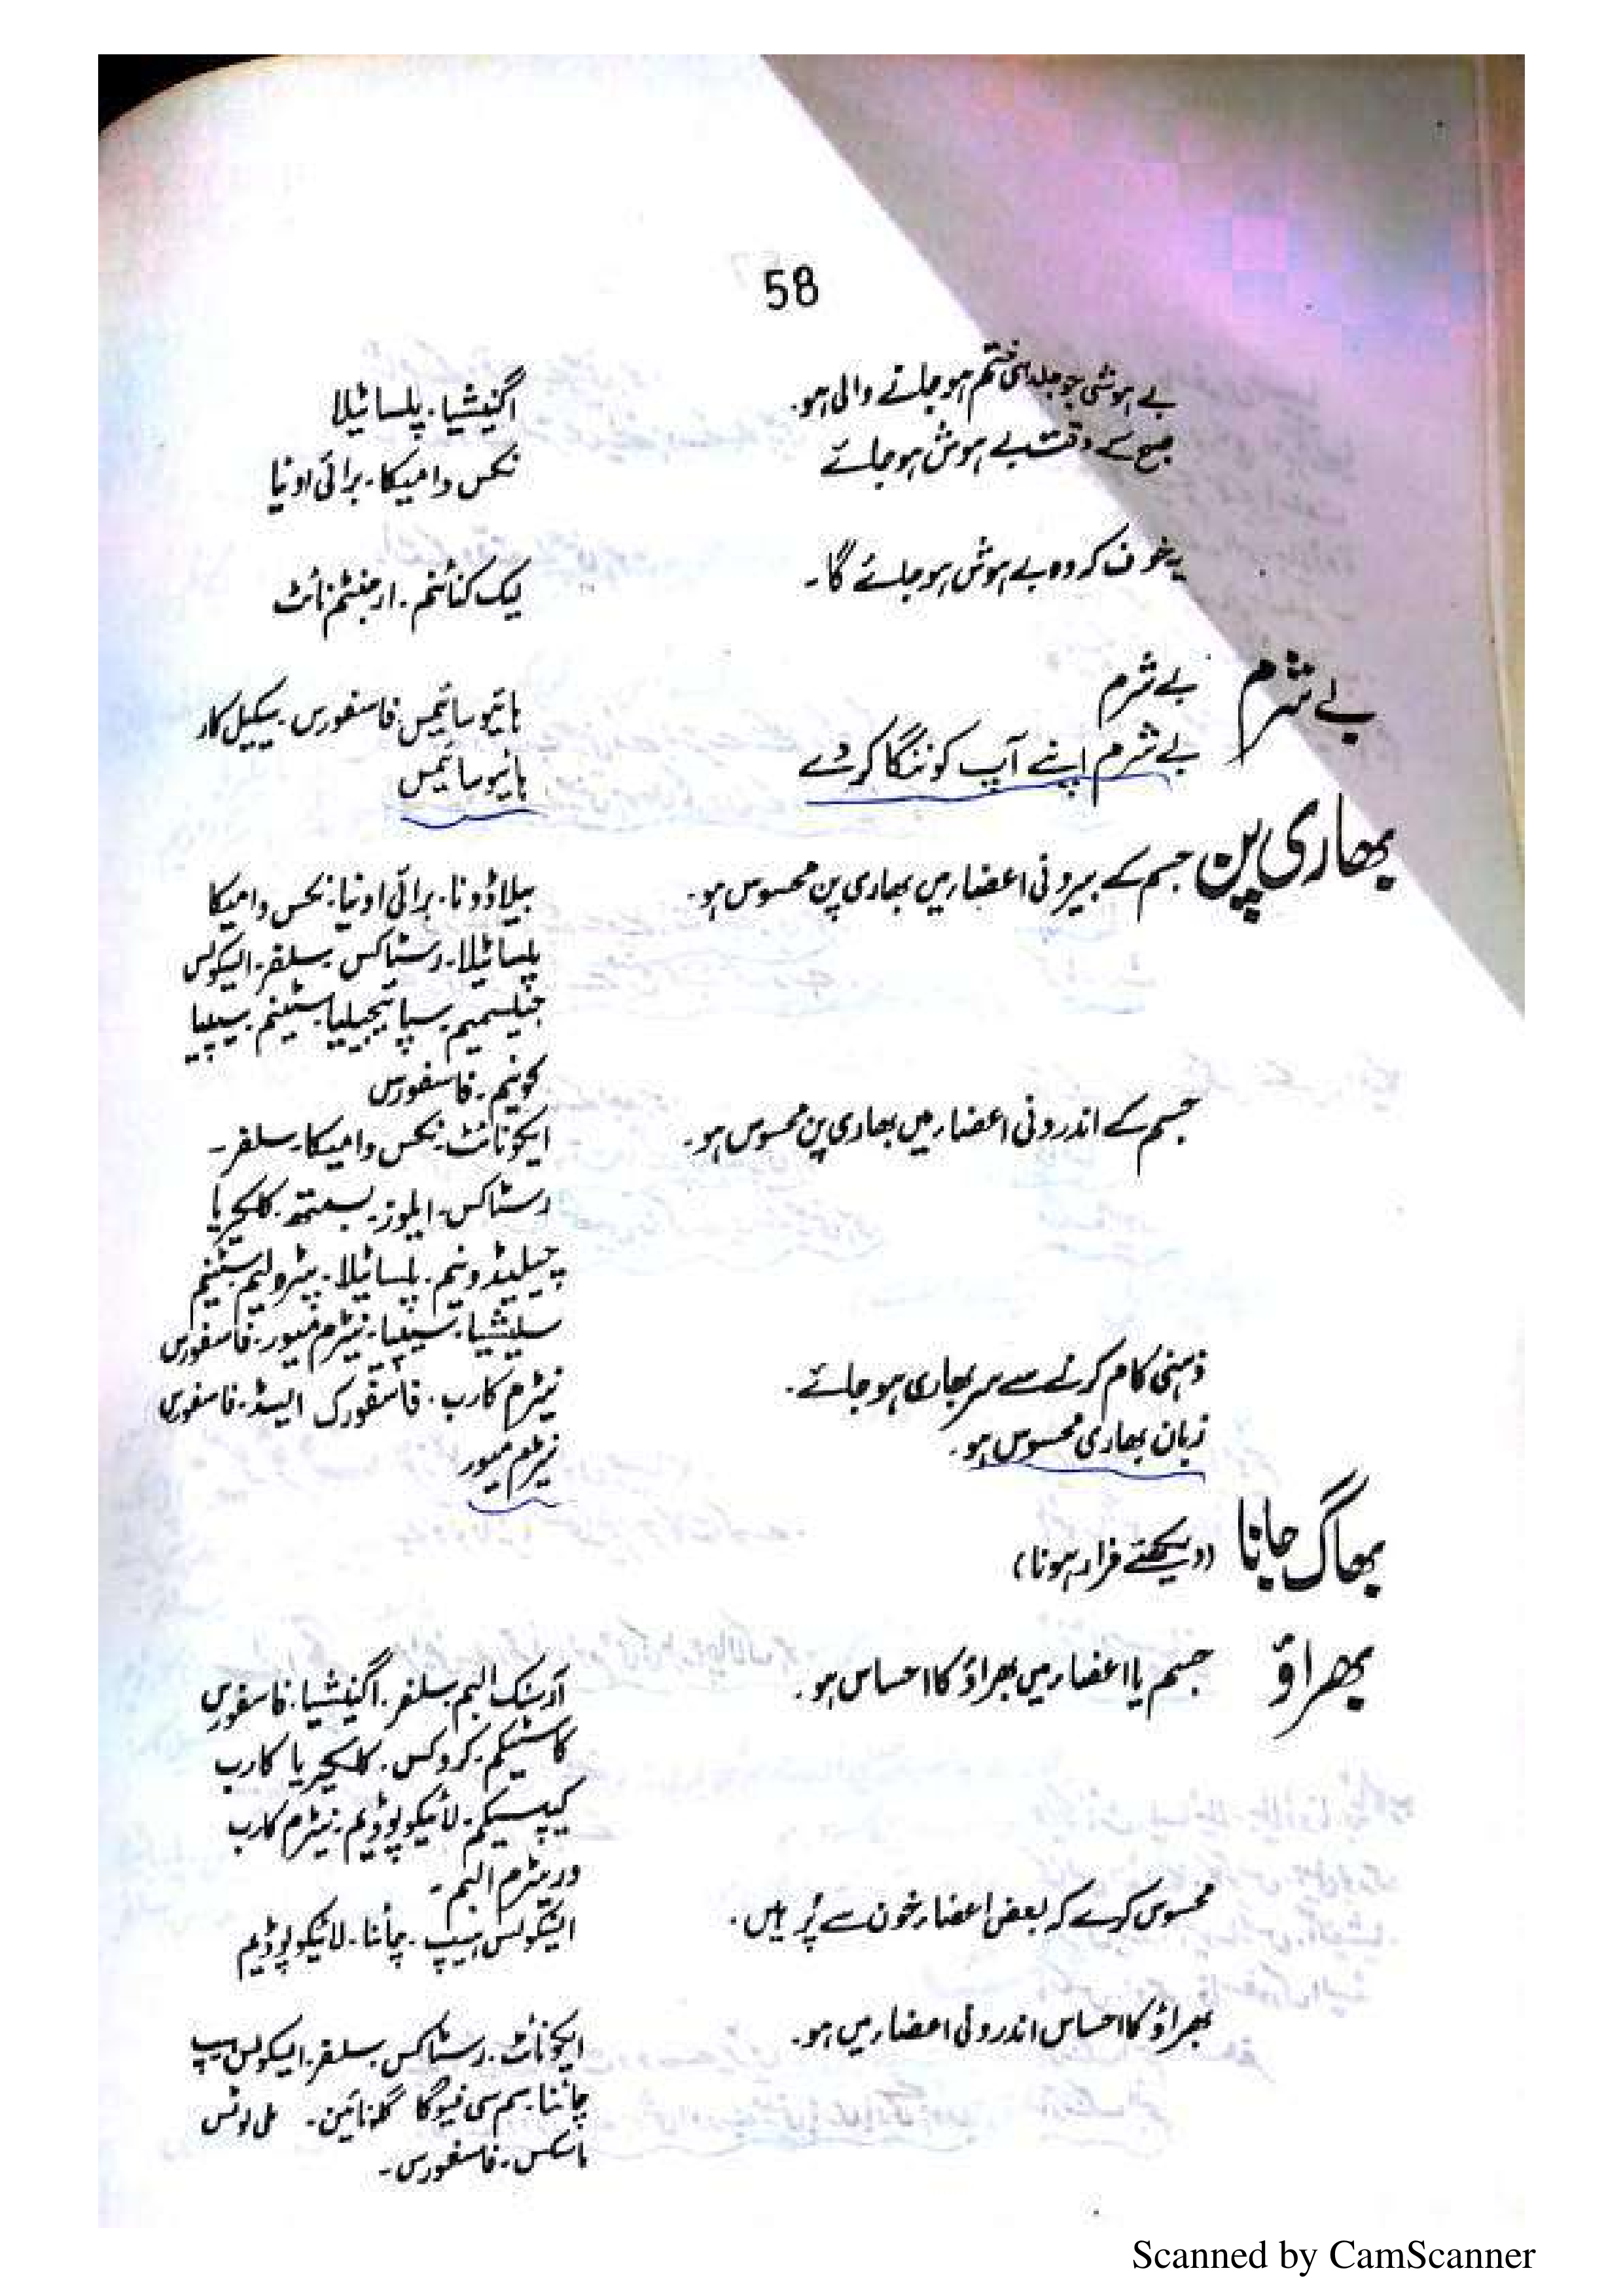 58
بے ہوشی جو جلد ہی ختم ہو جانے والی ہو۔ اگنیشیا۔ پلساٹیلا
صبح کے وقت بے ہوش ہو جائے نکس وامیکا۔ برائی اونیا
یہ خوف کہ وہ بے ہوش ہو جائے گا۔ لیک کنائنم۔ ارجنٹم نائٹ
بے شرم بے شرم ہائیوسائمس فاسفورس۔ سیکیل کار
بے شرم اپنے آپ کو ننگا کر دے ہائیوسائمس
بھاری پن جسم کے بیرونی اعضاء میں بھاری پن محسوس ہو۔ بیلاڈونا۔ برائی اونیا۔ نکس وامیکا
پلساٹیلا۔ رسٹاکس۔ سلفر۔ ایسکولس
جیلسمیم۔ سپائیجیلیا۔ سٹینم۔ سیپیا
کونیم۔ فاسفورس
جسم کے اندرونی اعضاء میں بھاری پن محسوس ہو۔ ایکونائٹ۔ نکس وامیکا۔ سلفر۔
رسٹاکس۔ ایلوز۔ بسمتھ۔ کلکیریا
چیلیڈونیم۔ پلساٹیلا۔ پیٹرولیم سٹینم
سلیشیا۔ سیپیا۔ نیٹرم میور۔ فاسفورس
ذہنی کام کرنے سے سر بھاری ہو جائے۔ نیٹرم کارب۔ فاسفورک ایسڈ۔ فاسفورس
زبان بھاری محسوس ہو۔ نیٹرم میور
بھاگ جانا (دیکھئے فرار ہونا)
بھراؤ جسم یا اعضاء میں بھراؤ کا احساس ہو۔ آرسنک البم۔ سلفر۔ اگنیشیا۔ فاسفورس
کاسٹیکم۔ کروکس۔ کلکیریا کارب
کیپسیکم۔ لائیکوپوڈیم۔ نیٹرم کارب
وریٹرم البم۔
محسوس کرے کہ بعض اعضاء خون سے پُر ہیں۔ ایسکولس ہیپ۔ چائنا۔ لائیکوپوڈیم
بھراؤ کا احساس اندرونی اعضاء میں ہو۔ ایکونائٹ۔ رسٹاکس۔ سلفر۔ ایسکولس ہیپ
چائنا۔ سم سی فیوگا گلونائین۔
ماسکس۔ فاسفورس۔
Scanned by CamScanner